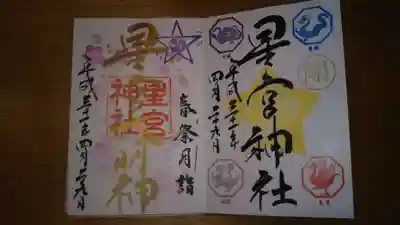 星宮神社
平成三十一年
四月二十九日
春祭月詣
星宮
神社
星
明神
平成三十一年四月二十九日